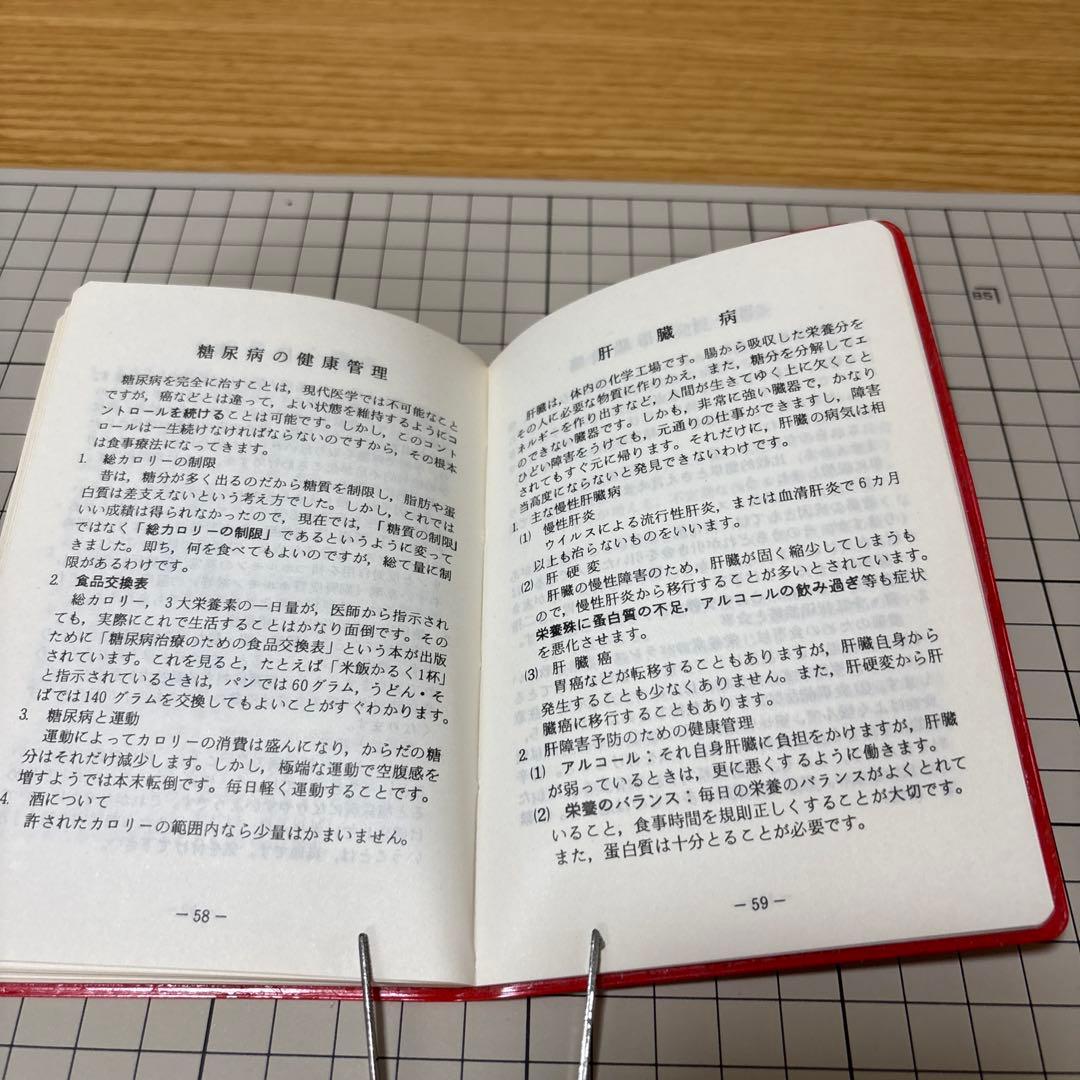 糖尿病の健康管理
糖尿病を完全に治すことは，現代医学では不可能なこと
ですが，癌などとは違って，よい状態を維持するようにコ
ントロールを続けることは可能です。しかし，このコント
ロールは一生続けなければならないのですから，その根本
は食事療法になってきます。
1. 総カロリーの制限
昔は，糖分が多く出るのだから糖質を制限し，脂肪や蛋
白質は差支えないという考え方でした。しかし，これでは
いい成績は得られなかったので，現在では，「糖質の制限」
ではなく「総カロリーの制限」であるというように変って
きました。即ち，何を食べてもよいのですが，総て量に制
限があるわけです。
2. 食品交換表
総カロリー，3大栄養素の一日量が，医師から指示され
ても，実際にこれで生活することはかなり面倒です。その
ために「糖尿病治療のための食品交換表」という本が出版
されています。これを見ると，たとえば「米飯かるく1杯」
と指示されているときは，パンでは60グラム，うどん・そ
ばでは140グラムを交換してもよいことがすぐわかります。
3. 糖尿病と運動
運動によってカロリーの消費は盛んになり，からだの糖
分はそれだけ減少します。しかし，極端な運動で空腹感を
増すようでは本末転倒です。毎日軽く運動することです。
4. 酒について
許されたカロリーの範囲内なら少量はかまいません。
－58－
肝臓病
肝臓は，体内の化学工場です。腸から吸収した栄養分を
その人に必要な物質に作りかえ，また，糖分を分解してエ
ネルギーを作り出すなど，人間が生きてゆく上に欠くこと
のできない臓器です。しかも，非常に強い臓器で，かなり
ひどい障害をうけても，元通りの仕事ができますし，障害
されてもすぐ元に帰ります。それだけに，肝臓の病気は相
当高度にならないと発見できないわけです。
1. 主な慢性肝臓病
(1) 慢性肝炎
ウイルスによる流行性肝炎，または血清肝炎で6カ月
以上も治らないものをいいます。
(2) 肝硬変
肝臓の慢性障害のため，肝臓が固く縮少してしまうも
ので，慢性肝炎から移行することが多いとされています。
栄養殊に蛋白質の不足，アルコールの飲み過ぎ等も症状
を悪化させます。
(3) 肝臓癌
胃癌などが転移することもありますが，肝臓自身から
発生することも少なくありません。また，肝硬変から肝
臓癌に移行することもあります。
2. 肝障害予防のための健康管理
(1) アルコール：それ自身肝臓に負担をかけますが，肝臓
が弱っているときは，更に悪くするように働きます。
(2) 栄養のバランス：毎日の栄養のバランスがよくとれて
いること，食事時間を規則正しくすることが大切です。
また，蛋白質は十分とることが必要です。
－59－
85